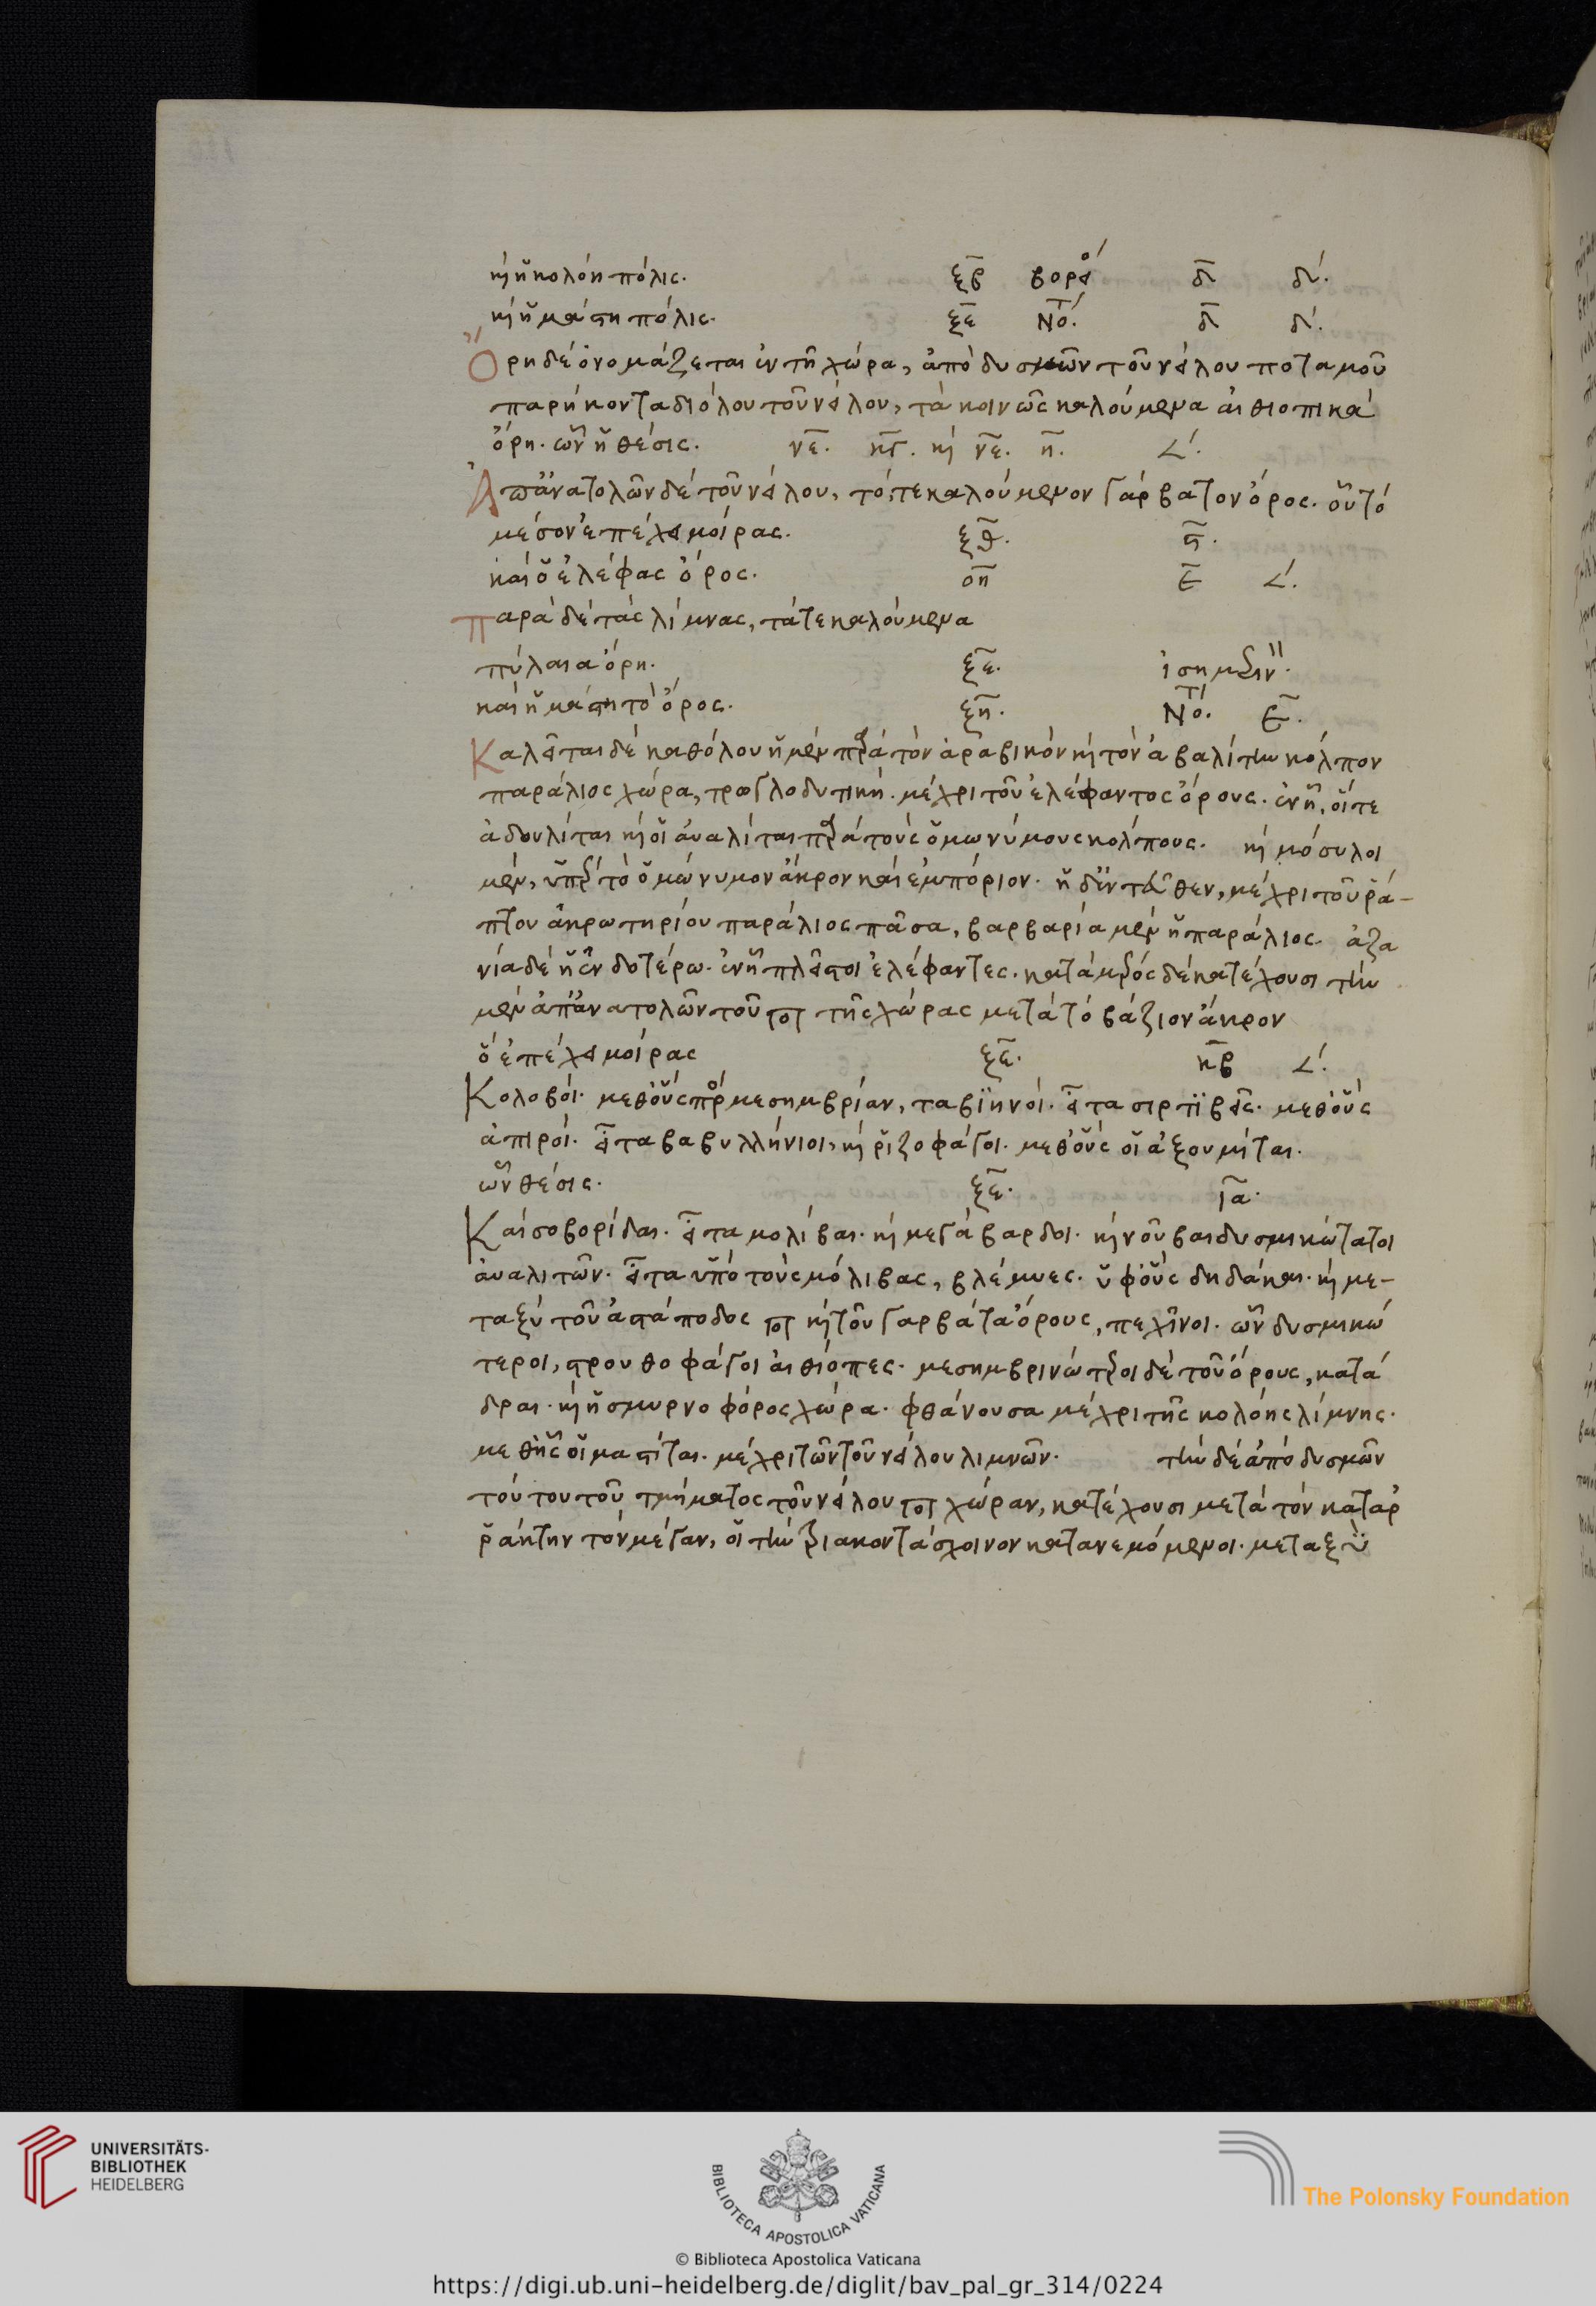 καὶ ἡ κολόη πόλις. ξβ βορει δ δ'.
καὶ ἡ μάστη πόλις. ξε Νοτ. δ δ'.
Ὄρη δὲ ὀνομάζεται ἐν τῆ χώρα, ἀπὸ δυσμῶν τοῦ νείλου ποταμοῦ
παρήκοντα διόλου τοῦ νείλου, τὰ κοινῶς καλούμενα αἰθιοπικὰ
ὄρη. ὧν ἡ θέσις. νε. κγ. καὶ νε. η. ∠'.
Ἀπ' ἀνατολῶν δὲ τοῦ νείλου, τό, τε καλούμενον Γάρβατον ὄρος. οὗ τὸ
μέσον ἐπέχει μοίρας. ξθ. ϛ.
καὶ ὁ ἐλέφας ὄρος. οη ε ∠'.
Παρὰ δὲ τὰς λίμνας, τά τε καλούμενα
πύλαια ὄρη. ξε. ἰσημεριν.
καὶ ἡ μάστη τὸ ὄρος. ξη. Νοτ. ε.
Καλεῖται δὲ καθόλου ἡ μὲν παρὰ τὸν ἀραβικὸν καὶ τὸν ἀβαλίτην κόλπον
παράλιος χώρα, τρωγλοδυτική. μέχρι τοῦ ἐλέφαντος ὄρους. ἐν ἧ, οἵ τε
ἀδουλίται καὶ οἱ ἀναλίται παρὰ τοὺς ὁμωνύμους κόλπους. καὶ μόσυλοι
μὲν, ὑπὲρ τὸ ὁμώνυμον ἄκρον καὶ ἐμπόριον. ἡ δ' ἐντεῦθεν, μέχρι τοῦ ῥά-
πτου ἀκρωτηρίου παράλιος πᾶσα, βαρβαρία μὲν ἡ παράλιος. ἀζα
νία δὲ ἡ ἐνδοτέρω. ἐν ἧ πλεῖστοι ἐλέφαντες. κατὰ μέρος δὲ κατέχουσι τὴν
μὲν ἀπ' ἀνατολῶν τοῦ ποτ τῆς χώρας μετὰ τὸ βάζιον ἄκρον
ὃ ἐπέχει μοίρας ξε. κβ ∠'.
Κολοβοί. μεθ' οὓς πρὸς μεσημβρίαν, ταβιηνοί. εἶτα σιρτιβεῖς. μεθ' οὓς
ἀπιροί. εἶτα βαβυλλήνιοι, καὶ ῥιζοφάγοι. μεθ' οὓς οἱ ἀξουμίται.
ὧν θέσις. ξε. ια.
Καὶ σοβορίδαι. εἶτα μολίβαι. καὶ μεγάβαρδοι. καὶ νοῦβαι δυσμικώτατοι
ἀναλιτῶν. εἶτα ὑπὸ τοὺς μόλιβας, βλέμυες. ὑφ' οὓς δηδάκαι. καὶ με-
ταξὺ τοῦ ἀστάποδος ποτ καὶ τοῦ Γαρβάτα ὄρους, πεχῖνοι. ὧν δυσμικώ
τεροι, στρουθοφάγοι αἰθίοπες. μεσημβρινώτεροι δὲ τοῦ ὄρους, κατά
δραι. καὶ ἡ σμυρνοφόρος χώρα. φθάνουσα μέχρι τῆς κολόης λίμνης.
μεθ' ἧς οἱ μαστῖται. μέχρι τῶν τοῦ νείλου λιμνῶν. τὴν δὲ ἀπὸ δυσμῶν
τούτου τοῦ τμήματος τοῦ νείλου ποτ χώραν, κατέχουσι μετὰ τὸν καταρ
ράκτην τὸν μέγαν, οἱ τὴν τριακοντάσχοινον κατανεμόμενοι. μεταξὺ
UNIVERSITÄTS-
BIBLIOTHEK
HEIDELBERG
BIBLIOTECA APOSTOLICA VATICANA
The Polonsky Foundation
© Biblioteca Apostolica Vaticana
https://digi.ub.uni-heidelberg.de/diglit/bav_pal_gr_314/0224